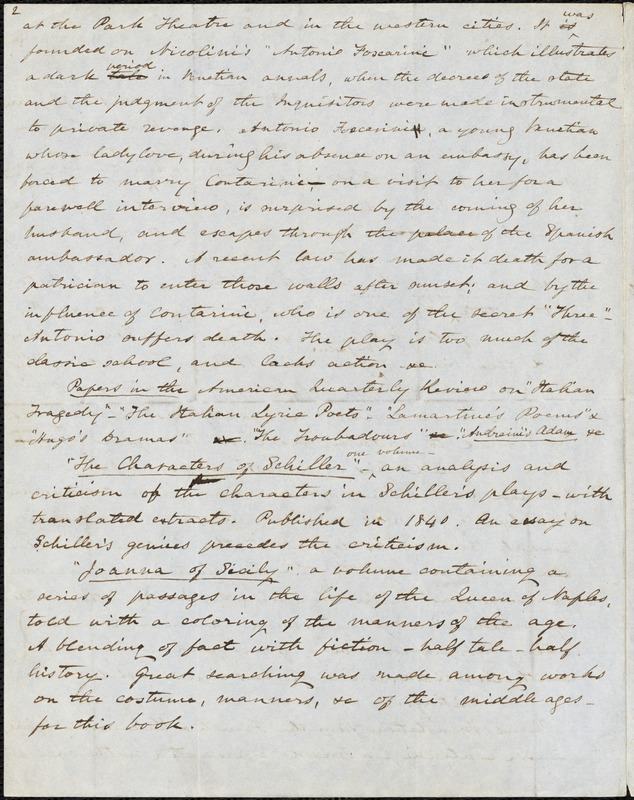 2
at the Park Theatre and in the western cities. It is was
founded on Nicolini's "Antonio Foscarini" which illustrates
a dark tale period in Venetian annals, when the decrees of the state
and the judgment of the Inquisitors were made instrumental
to private revenge. Antonio Foscarini, a young Venetian
whose ladylove, during his absence on an embassy, has been
forced to marry Contarini – on a visit to her for a
farewell interview, is surprised by the coming of her
husband, and escapes through the palace of the Spanish
ambassador. A recent law has made it death for a
patrician to enter those walls after sunset; and by the
influence of Contarini, who is one of the secret "Three" –
Antonio suffers death. The play is too much of the
classic school, and lacks action &c.
Papers in the American Quarterly Review on "Italian
Tragedy" – "The Italian Lyric Poets" "Lamartine's Poems" &
– "Hugo's Dramas" &c. "The Troubadours" &c. "Andreini's Adam &c
"The Characters of Schiller" – one volume – an analysis and
criticism of the characters in Schiller's plays – with
translated extracts. Published in 1840. An essay on
Schiller's genius precedes the criticism.
"Joanna of Sicily" a volume containing a
series of passages in the life of the Queen of Naples,
told with a coloring of the manners of the age.
A blending of fact with fiction – half tale – half
history. Great searching was made among works
on the costume, manners, &c of the middle ages –
for this book.